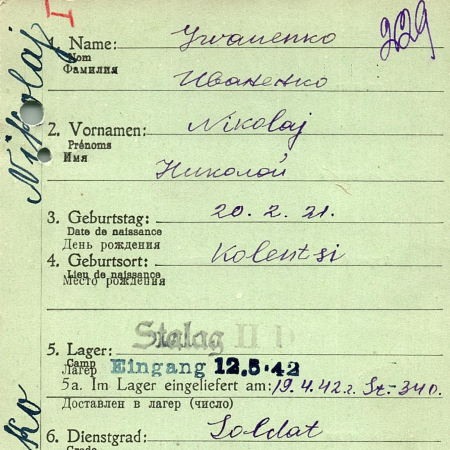 I
229
Nikolaj
1. Name: Iwanenko
Nom
Фамилия
Иваненко
2. Vornamen: Nikolaj
Prénoms
Имя
Николай
3. Geburtstag: 20. 2. 21.
Date de naissance
День рождения
4. Geburtsort: Kolentsi
Lieu de naissance
Место рождения
Stalag II
5. Lager:
Camp
Лагер
Eingang 12.5.42
5a. Im Lager eingeliefert am: 19.4.42. St-340.
Доставлен в лагер (число)
6. Dienstgrad: Soldat
Grade
ko